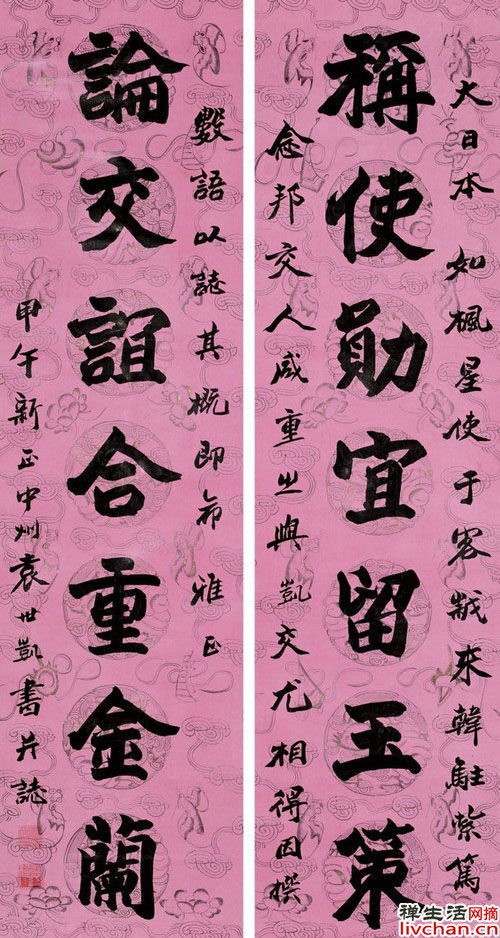 大日本如楓星使于客歲來韓駐紮篤
稱使勛宜留玉策
念邦交人咸重之與凱交尤相得因撰
數語以誌其概即希雅正
論交誼合重金蘭
甲午新正中州袁世凱書并誌
禅生活网摘
livchan.cn